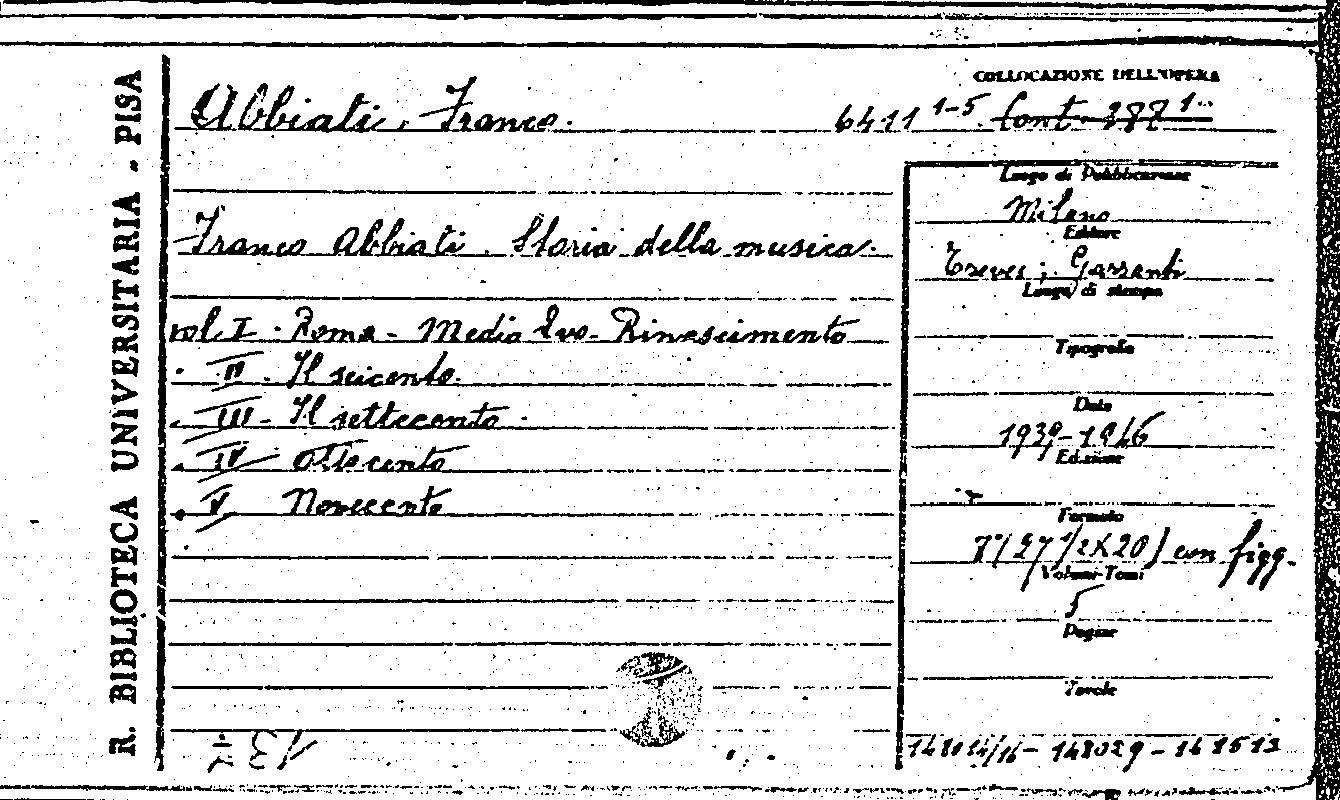 R. BIBLIOTECA UNIVERSITARIA - PISA
COLLOCAZIONE DELL'OPERA
Abbiati, Franco. 6411 1-5 Cont. 287 1..
Franco Abbiati. Storia della musica.
vol. I. Roma - Medio Evo - Rinascimento
" II. Il seicento.
" III - Il settecento.
" IV Ottocento
" V Novecento
Luogo di Pubblicazione
Milano
Editore
Treves; Garzanti
Luogo di stampa
Tipografia
Data
1939-1946
Edizione
Formato
(27 1/2 X 20) con figg.
Volumi-Tomi
5
Pagine
Tavole
148029